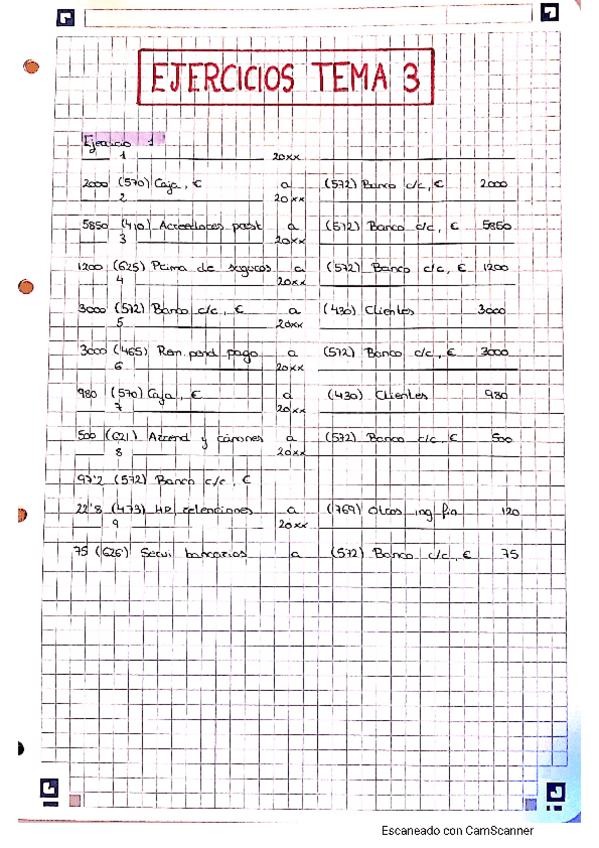 EJERCICIOS TEMA 3
Ejercicio 1
1 20xx
2000 (570) Caja, € a (572) Banco c/c, € 2000
2 20xx
5850 (410) Acreedores prest a (572) Banco c/c, € 5850
3 20xx
1200 (625) Prima de seguros a (572) Banco c/c, € 1200
4 20xx
3000 (572) Banco c/c, € a (430) Clientes 3000
5 20xx
3000 (465) Rem. pend pago a (572) Banco c/c, € 3000
6 20xx
980 (570) Caja, € a (430) Clientes 980
7 20xx
500 (621) Arrend y cánones a (572) Banco c/c, € 500
8 20xx
97'2 (572) Banco c/c, €
22'8 (473) HP, retenciones a (769) Otros ing fin 120
9 20xx
75 (626) Servi bancarios a (572) Banco c/c, € 75
Escaneado con CamScanner